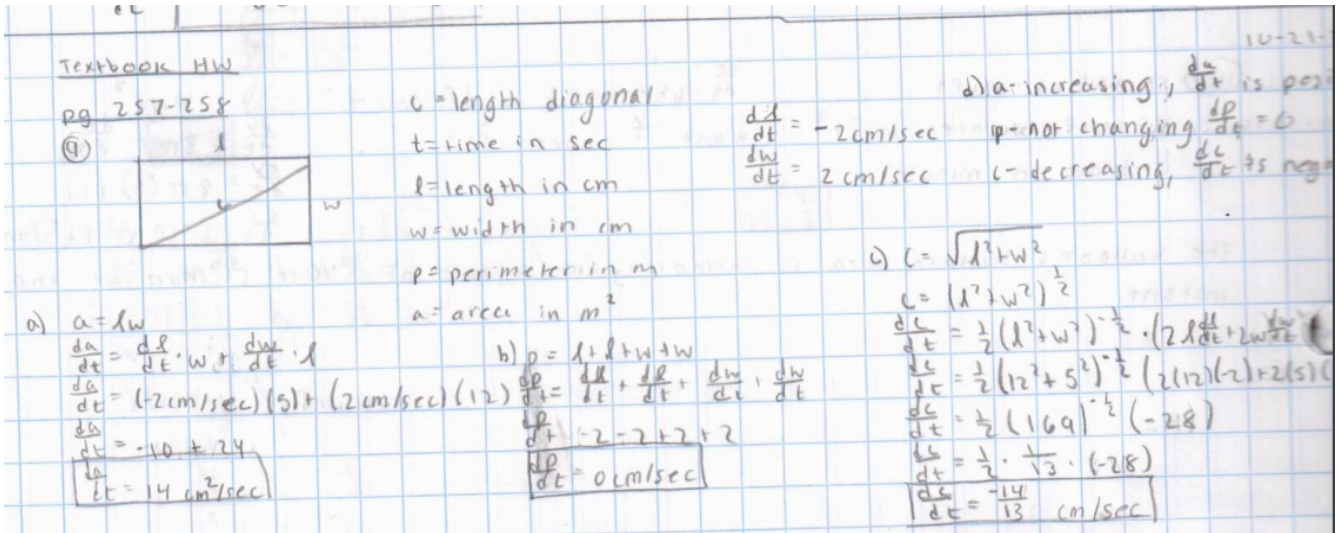 10-21-
Textbook HW
pg 257-258
9)
l
c
w
c = length diagonal
t = time in sec
l = length in cm
w = width in cm
p = perimeter in m
a = area in m²
dl/dt = -2cm/sec
dw/dt = 2 cm/sec
d) a-increasing, da/dt is posi
p-not changing dp/dt = 0
c-decreasing, dc/dt is nega
a) a = lw
da/dt = dl/dt · w + dw/dt · l
da/dt = (-2cm/sec)(5) + (2cm/sec)(12)
da/dt = -10 + 24
da/dt = 14 cm²/sec
b) p = l + l + w + w
dp/dt = dl/dt + dl/dt + dw/dt + dw/dt
dp/dt = -2 - 2 + 2 + 2
dp/dt = 0 cm/sec
c) c = √l² + w²
c = (l² + w²)^½
dc/dt = ½ (l² + w²)^-½ · (2l dl/dt + 2w dw/dt
dc/dt = ½ (12² + 5²)^-½ (2(12)(-2) + 2(5)(
dc/dt = ½ (169)^-½ (-28)
dc/dt = ½ · 1/13 · (-28)
dc/dt = -14/13 cm/sec